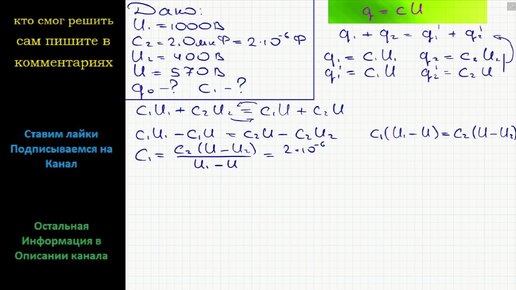 кто смог решить
сам пишите в
комментариях
Ставим лайки
Подписываемся на
Канал
Остальная
Информация в
Описании канала
Дано:
U₁ = 1000 В
C₂ = 2,0 мкФ = 2·10⁻⁶ Ф
U₂ = 400 В
U = 570 В
q₀ - ? C₁ - ?
q = cU
q₁ + q₂ = q₁' + q₂'
q₁ = C₁U₁ q₂ = C₂U₂
q₁' = C₁U q₂' = C₂U
C₁U₁ + C₂U₂ = C₁U + C₂U
C₁U₁ - C₁U = C₂U - C₂U₂ C₁(U₁-U) = C₂(U-U₂)
C₁ = C₂(U-U₂) / U₁-U = 2·10⁻⁶